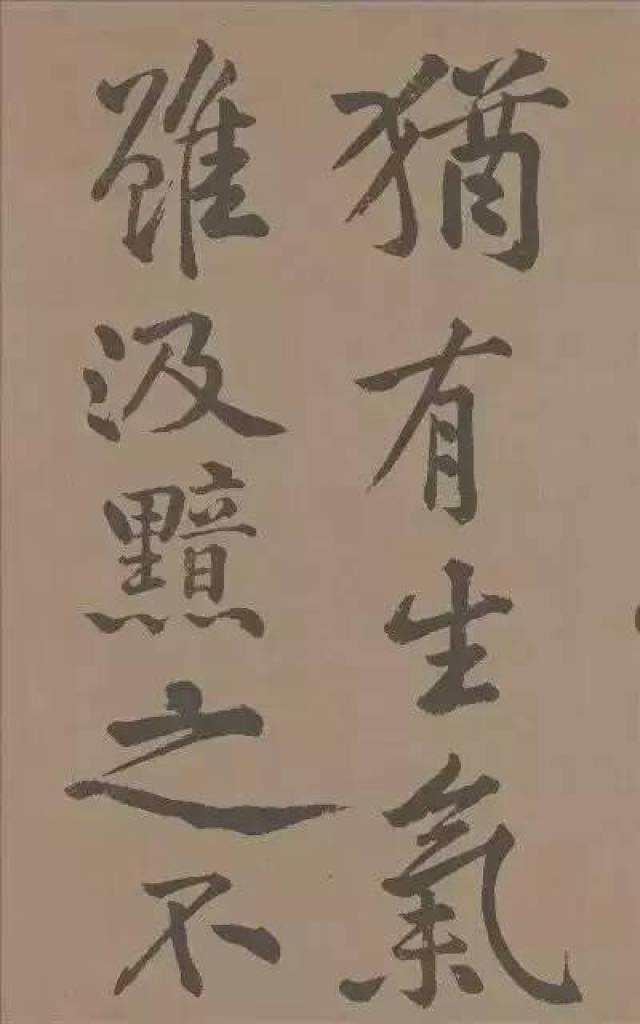 猶有生氣
雖汲黯之不